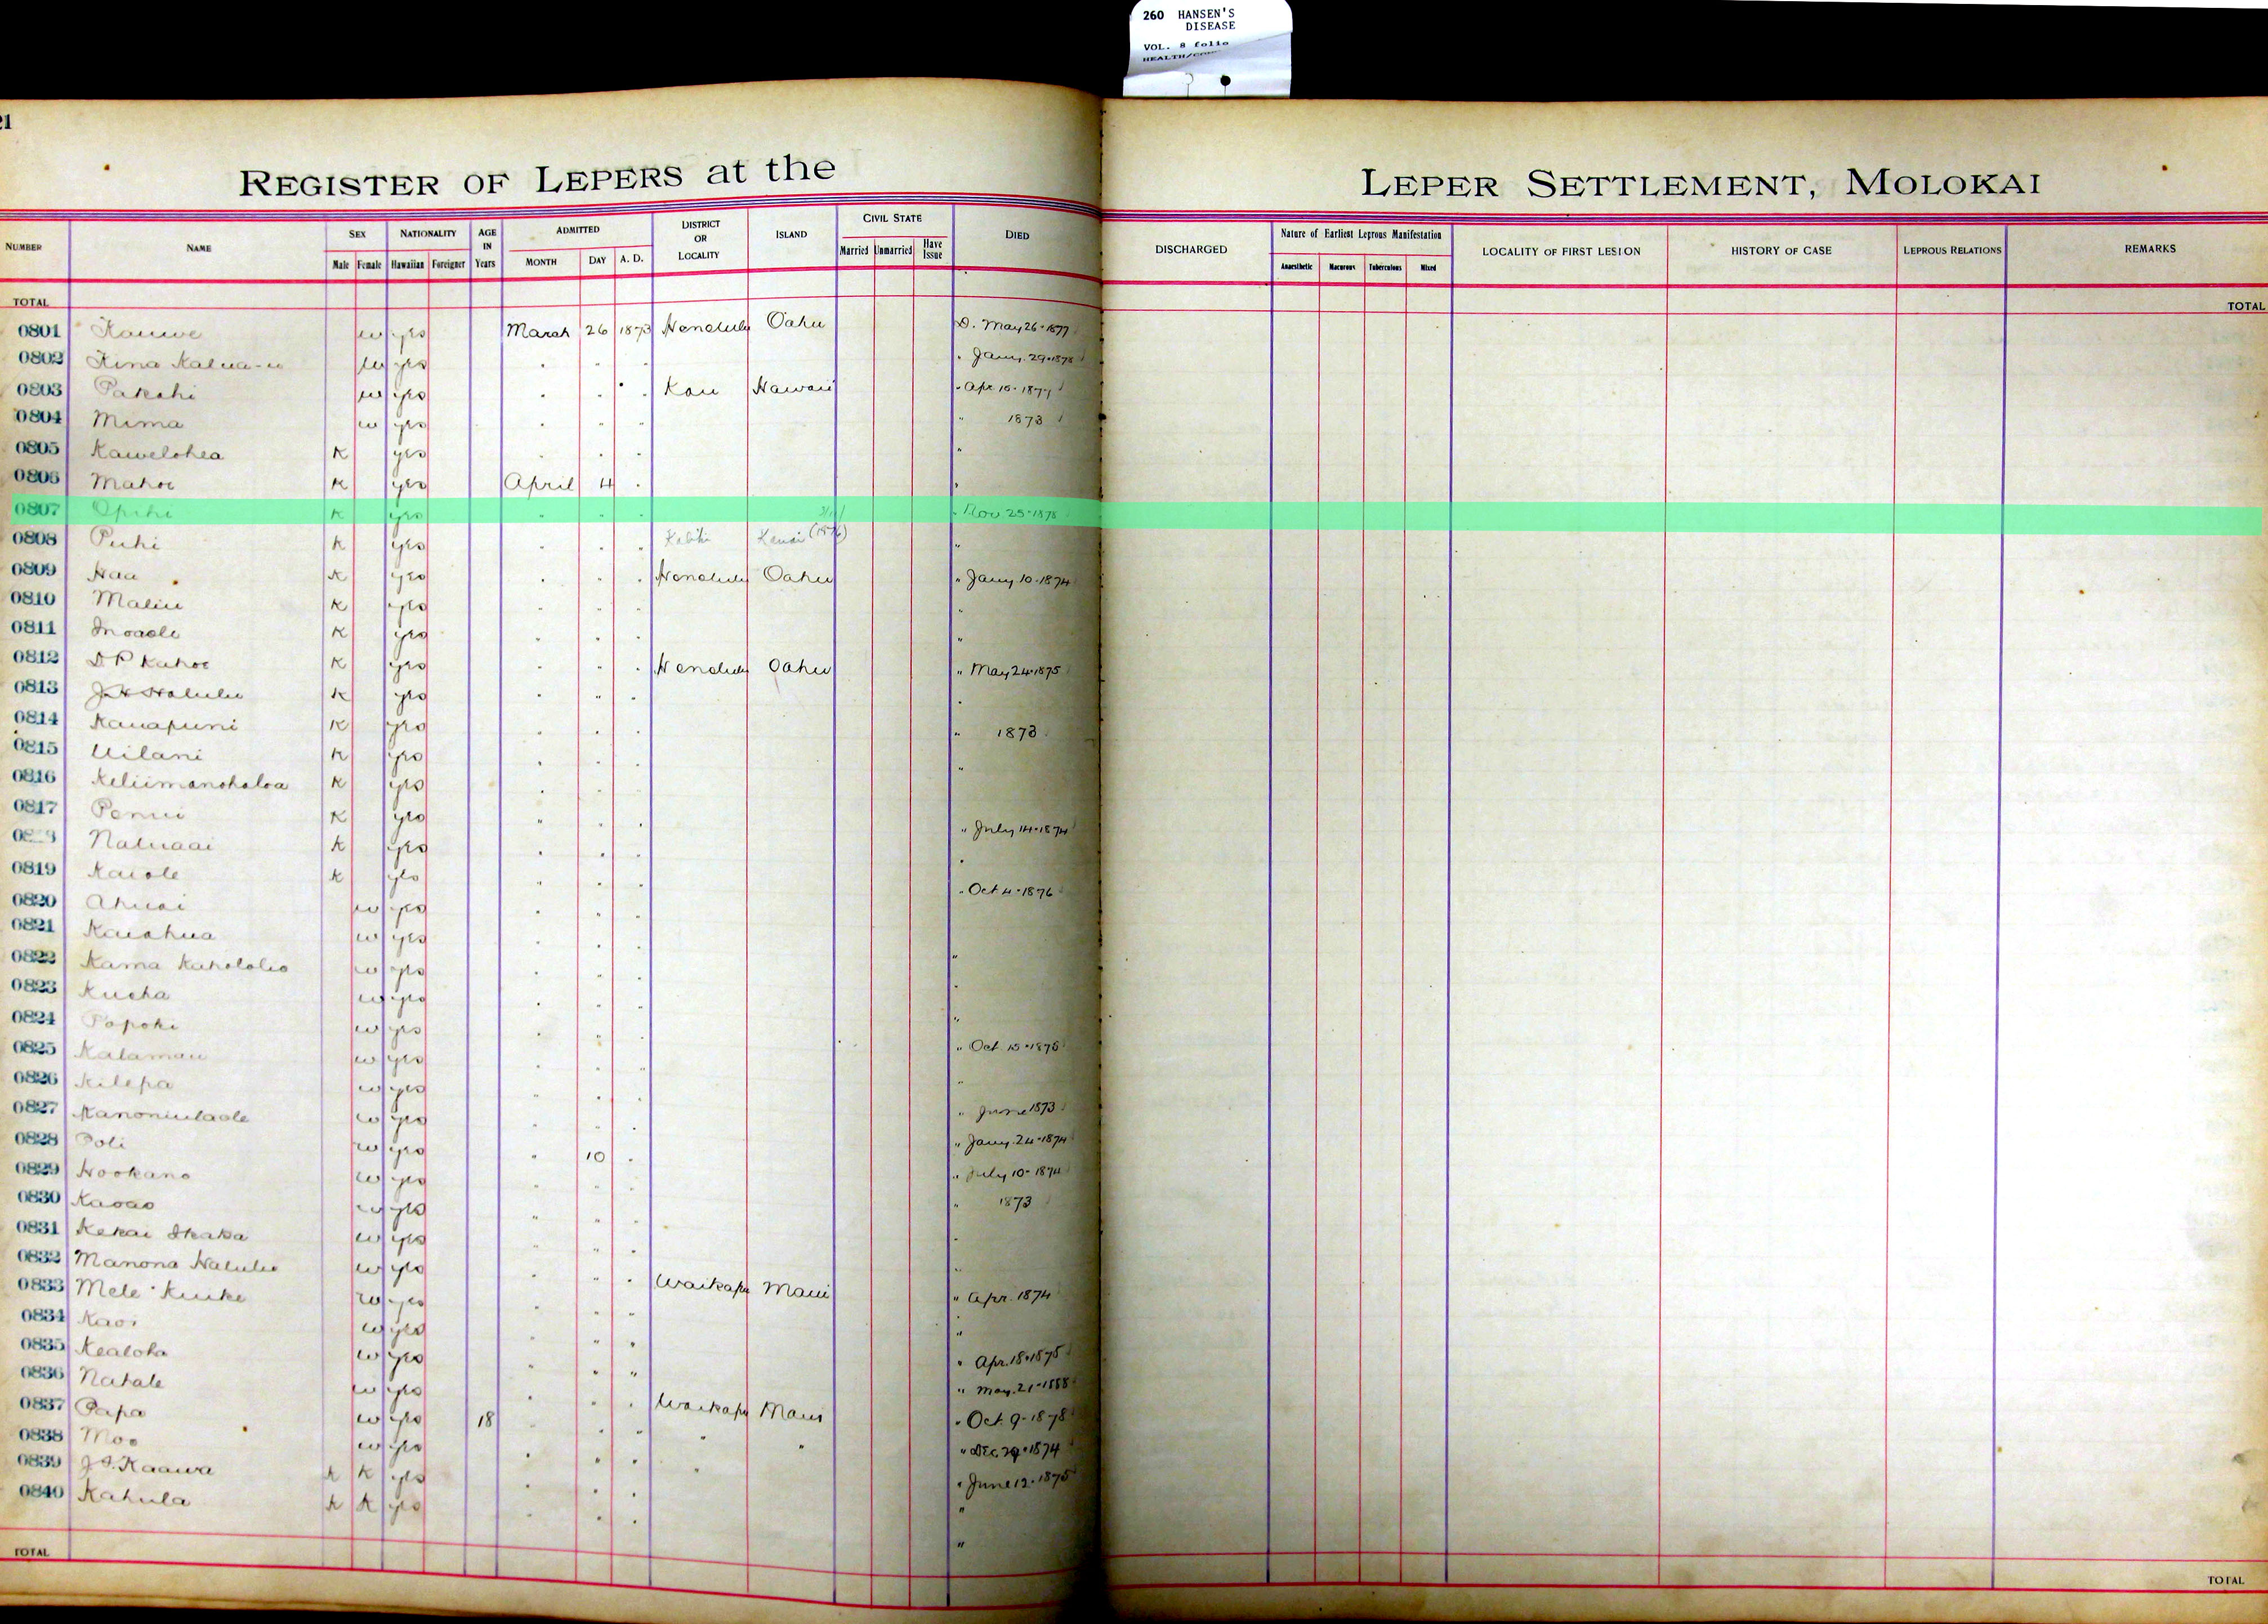 260 HANSEN'S
DISEASE
VOL. 8 folio
21
REGISTER OF LEPERS at the LEPER SETTLEMENT, MOLOKAI
NUMBER NAME SEX NATIONALITY AGE IN Years ADMITTED DISTRICT OR LOCALITY ISLAND CIVIL STATE DIED DISCHARGED Nature of Earliest Leprous Manifestation LOCALITY OF FIRST LESION HISTORY OF CASE LEPROUS RELATIONS REMARKS
Male Female Hawaiian Foreigner MONTH DAY A. D. Married Unmarried Have Issue Anaesthetic Macurous Tuberculous Mixed
TOTAL TOTAL
0801 Kauwe w yes March 26 1873 Honolulu Oahu D. May 26-1877
0802 Kina Kalua-u w yes " " " " Jany. 29-1878
0803 Pakahi w yes " " " Kau Hawaii " Apr 10-1877
0804 Mima w yes " " " " 1873
0805 Kawelohea K yes " " " "
0806 Mahoe K yes April 4 " "
0807 Opihi K yes " " " " Nov 25-1878
0808 Puhi K yes " " " Kauai "
0809 Haa K yes " " " Honolulu Oahu " Jany 10-1874
0810 Maliu K yes " " " "
0811 Inoaole K yes " " " "
0812 D P Kahoe K yes " " " Honolulu Oahu " May 24-1875
0813 J H Halulu K yes " " " "
0814 Kauapuni K yes " " " " 1873
0815 Uilani K yes " " " "
0816 Keliimanohaloa K yes " " "
0817 Penui K yes " " " " July 14-1874
Naluaai K yes " " " "
0819 Kaiole K yes " " " " Oct 4-1876
0820 Ahuai w yes " " "
0821 Kaiahua w yes " " " "
0822 Kama Kahololio w yes " " " "
0823 Kueha w yes " " " "
0824 Popoki w yes " " " " Oct. 15-1878
0825 Kalamau w yes " " " "
0826 Kilepa w yes " " " " June 1873
0827 Kanoniulaole w yes " " " " Jany. 24-1874
0828 Poli w yes " 10 " " July 10-1874
0829 Hookano w yes " " " " 1873
0830 Kaoao w yes " " " "
0831 Kekai Ikaka w yes " " " "
0832 Manona Halulu w yes " " " Waikapu Maui " Apr. 1874
0833 Mele Kuike w yes " " " "
0834 Kaoi w yes " " " " Apr. 18-1875
0835 Kealoha w yes " " " " May. 21-1888
0836 Nahale w yes " " " Waikapu Maui " Oct. 9-1878
0837 Papa w yes 18 " " " " " " Dec 29-1874
0838 Moo w yes " " " " " June 12-1875
0839 J. I. Kaawa K K yes " " " "
0840 Kahula K K yes " " " "
TOTAL TOTAL